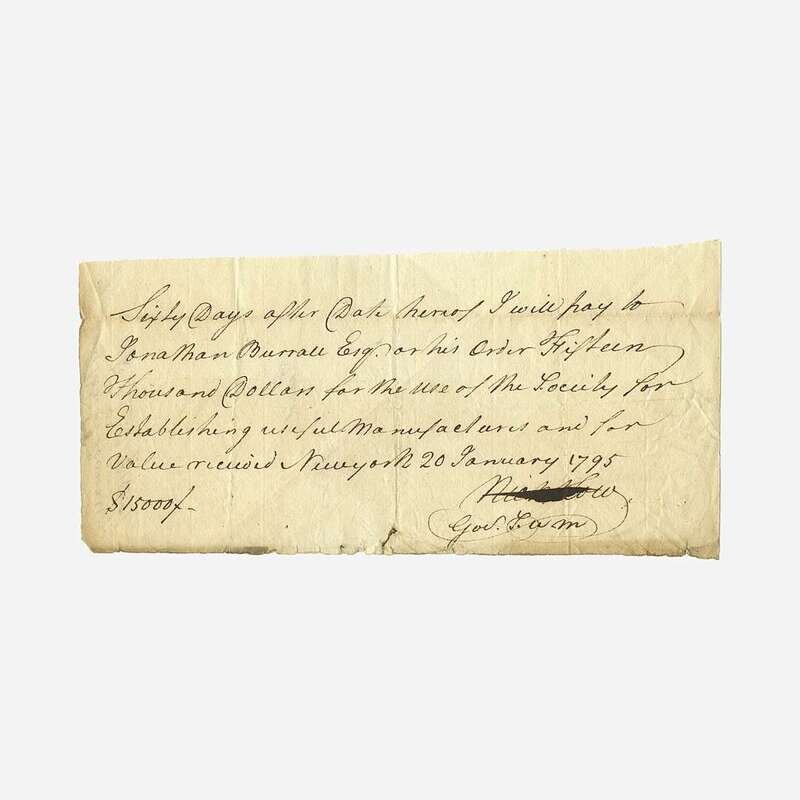 Sixty Days after Date hereof I will pay to
Jonathan Burrall Esq. or his Order Fifteen
Thousand Dollars for the use of the Society for
Establishing useful Manufactures and for
Value received Newyork 20 January 1795
$15000/-
Nich Low
Gov. S. u m